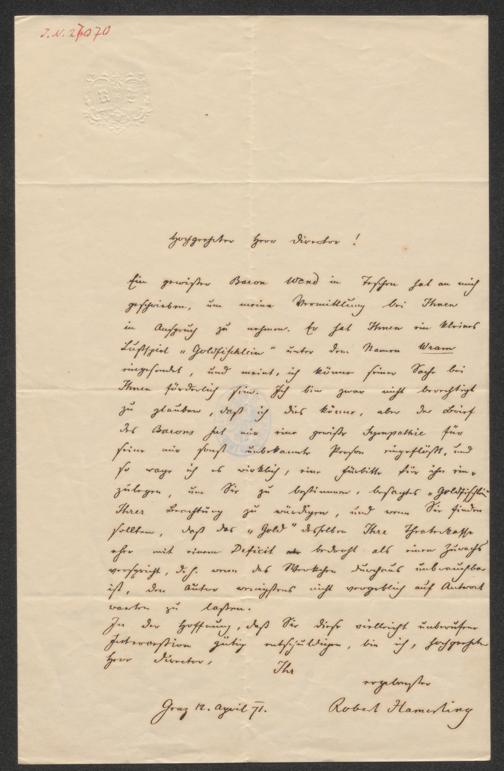 J. N. 27070
Hochgeehrter Herr Director!
Ein gewisser Baron Wend in Teschen hat an mich
geschrieben, um meine Vermittlung bei Ihnen
in Anspruch zu nehmen. Er hat Ihnen ein kleines
Lustspiel „Goldfischlein“ unter dem Namen Wram
eingesendet, und meint, ich könne seiner Sache bei
Ihnen förderlich sein. Ich bin zwar nicht berechtigt
zu glauben, daß ich dies könne, aber der Brief
des Barons hat mir eine gewisse Sympathie für
seine mir sonst unbekannte Person eingeflößt, und
so wage ich es wirklich, eine Fürbitte für ihn ein-
zulegen, um Sie zu bestimmen, besagtes „Goldfischlein
Ihrer Beachtung zu würdigen, und wenn Sie finden
sollten, daß das „Gold“ desselben Ihre Theaterkasse
eher mit einem Deficit bedroht als einen Zuwachs
verspricht, d. h. wenn das Werkchen durchaus unbrauchbar
ist, den Autor wenigstens nicht vergeblich auf Antwort
warten zu lassen.
In der Hoffnung, daß Sie diese vielleicht unberufene
Intercession gütig entschuldigen, bin ich, hochgeehrter
Herr Director,
Ihr
ergebenster
Graz 12. April 71. Robert Hamerling